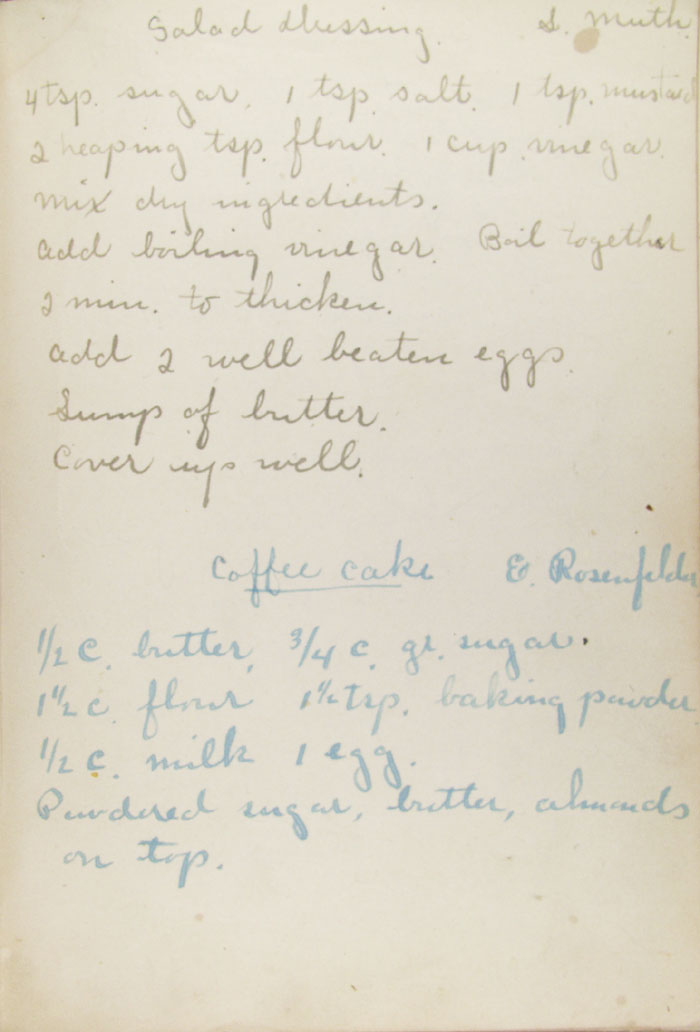 Salad Dressing. S. Muth.
4 tsp. sugar. 1 tsp. salt. 1 tsp. mustard
2 heaping tsp. flour. 1 cup vinegar.
mix dry ingredients.
add boiling vinegar. Boil together
2 min. to thicken.
add 2 well beaten eggs.
Lump of butter.
Cover up well.
Coffee cake E. Rosenfelder
1/2 c. butter, 3/4 c. gr. sugar.
1 1/2 c. flour 1 1/2 tsp. baking powder
1/2 c. milk 1 egg.
Powdered sugar, butter, almonds
on top.